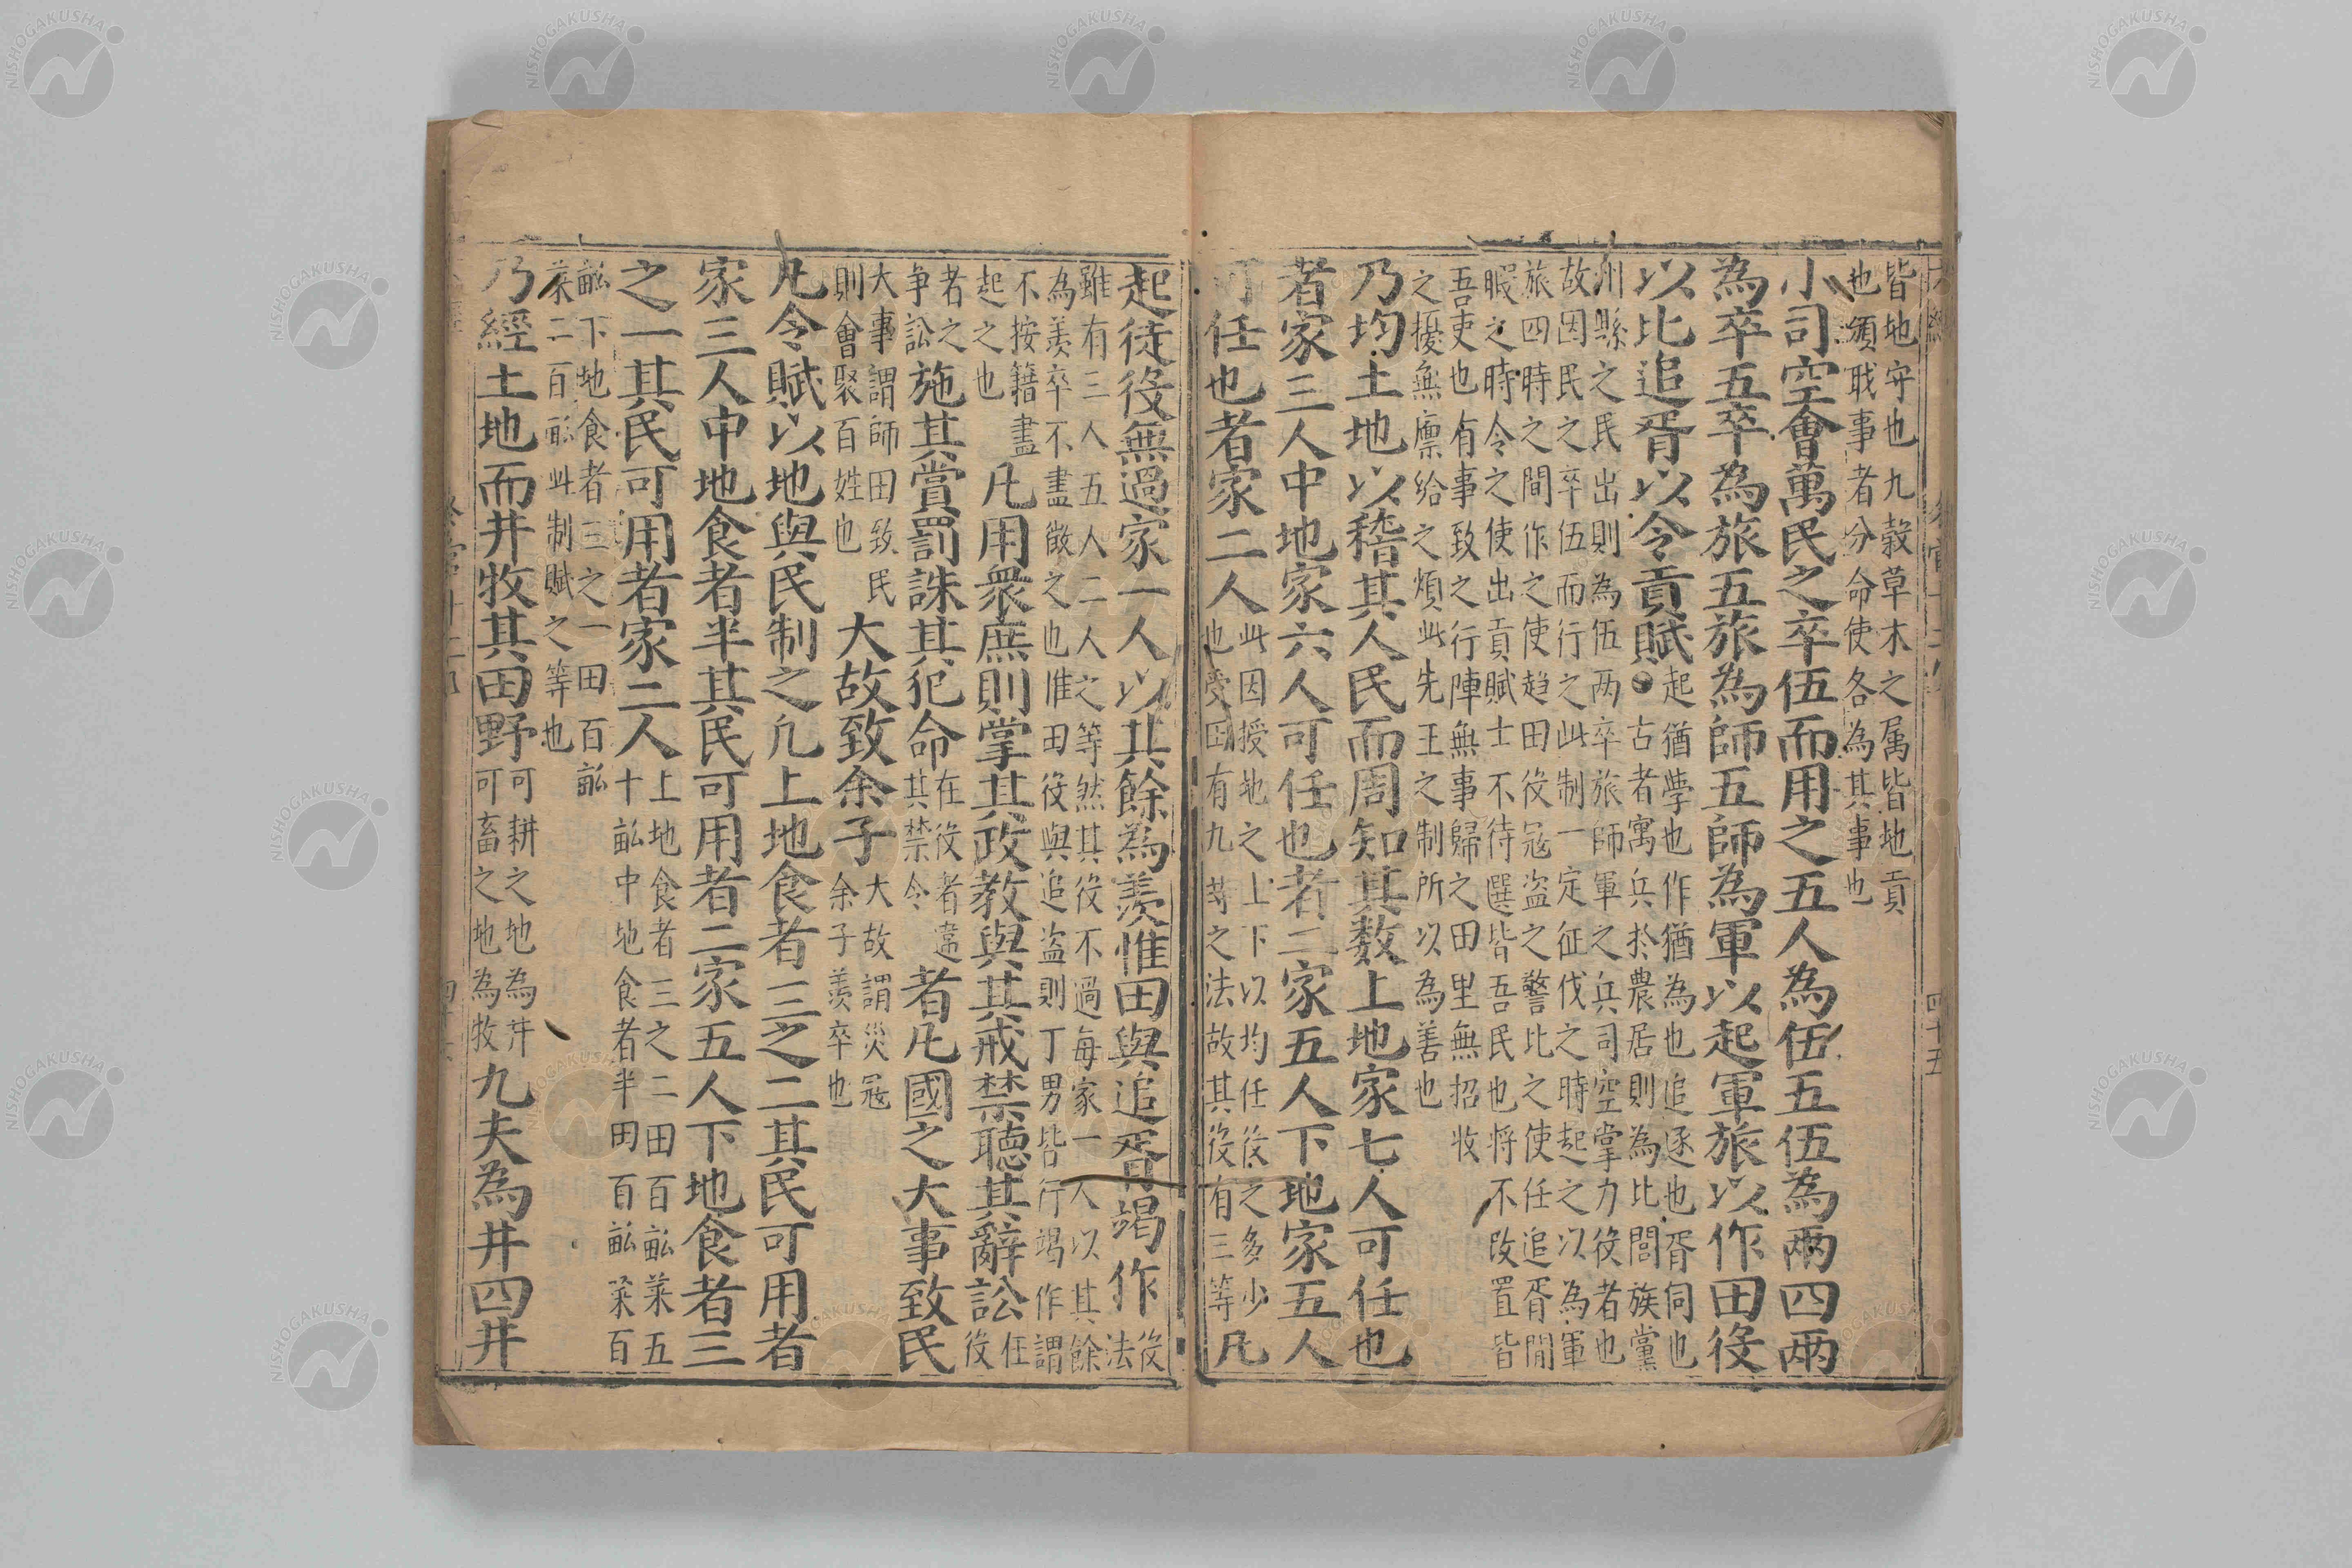 皆地守也九穀草木之属皆地貢
也頒戝事者分命使各為其事也
小司空會萬民之卒伍而用之五人為伍五伍為兩四兩
為卒五卒為旅五旅為師五師為軍以起軍旅以作田役
以比追胥以令貢賦
起猶學也作猶為也追逐也胥伺也
古者寓兵於農居則為比閭族黨
州縣之民出則為伍两卒旅師軍之兵司空掌力役者也
故因民之卒伍而行之此制一定征伐之時起之以為軍
旅四時之間作之使趋田役冦盜之警比之使任追胥閒
暇之時令之使出貢賦士不待選皆吾民也将不改置皆
吾吏也有事致之行陣無事歸之田里無招收
之擾無廪給之煩此先王之制所以為善也
乃均土地以稽其人民而周知其数上地家七人可任也
者家三人中地家六人可任也者二家五人下地家五人
可任也者家二人
此因授地之上下以均任役之多少
也受田有九等之法故其役有三等
凡
起徒役無過家一人以其餘為羡惟田與追胥竭作
役法
雖有三人五人二人之等然其役不過每家一人以其餘
為羡卒不盡徴之也惟田役與追盗則丁男皆行竭作謂
不按籍盡
起之也
凡用衆庶則掌其政教與其戒禁聽其辭訟
任役
者之
争訟
施其賞罰誅其犯命
在役者違
其禁令
者凡國之大事致民
大事謂師田致民
則會聚百姓也
大故致余子
大故謂災冦
余子羡卒也
凡令賦以地與民制之凢上地食者三之二其民可用者
家三人中地食者半其民可用者二家五人下地食者三
之一其民可用者家二人
上地食者三之二田百畆萊五
十畆中地食者半田百畆萊百
畆下地食者三之一田百畆
萊二百畆此制賦之等也
乃經土地而井牧其田野
可耕之地為井
可畜之地為牧
九夫為井四井
四十五